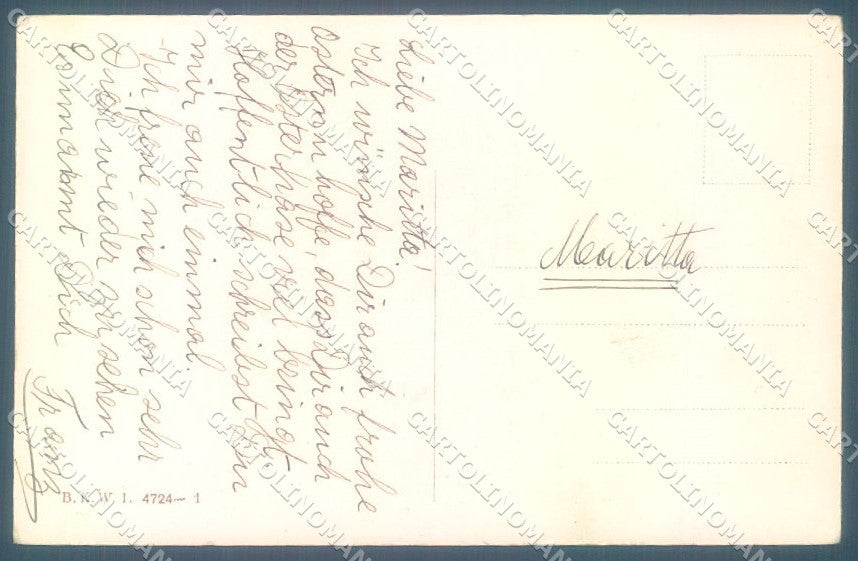 Liebe Maritta!
Ich wünsche Dir auch frohe
Ostern hoffe, dass Dir auch
der Osterhase viel bringt
Hoffentlich schreibst Du
mir auch einmal.
Ich freue mich schon sehr
Dich wieder zu sehen
Es umarmt Dich
Franz
Maritta
B. K. W. I. 4724—1
CARTOLINOMANIA